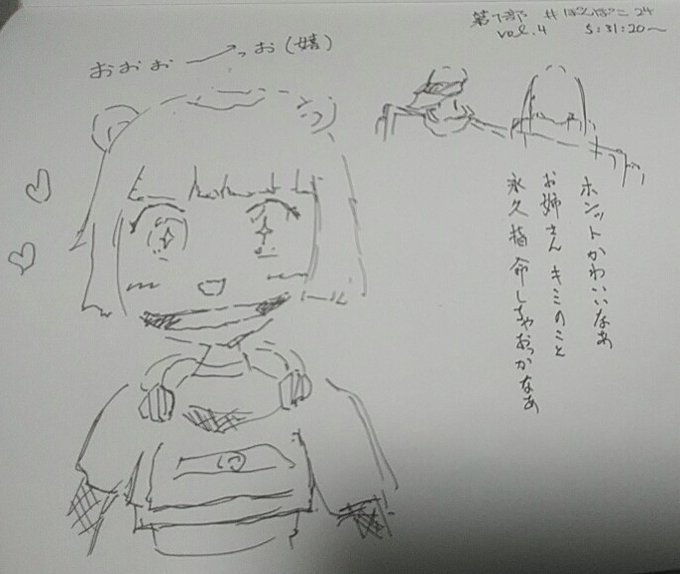 第7部 #ぽんぽこ24
vol.4 5:31:20〜
おぉぉ──→っお(嬉)
ホンットかわいいなぁ
お姉さんキミのこと
永久指命しちゃおっかなぁ